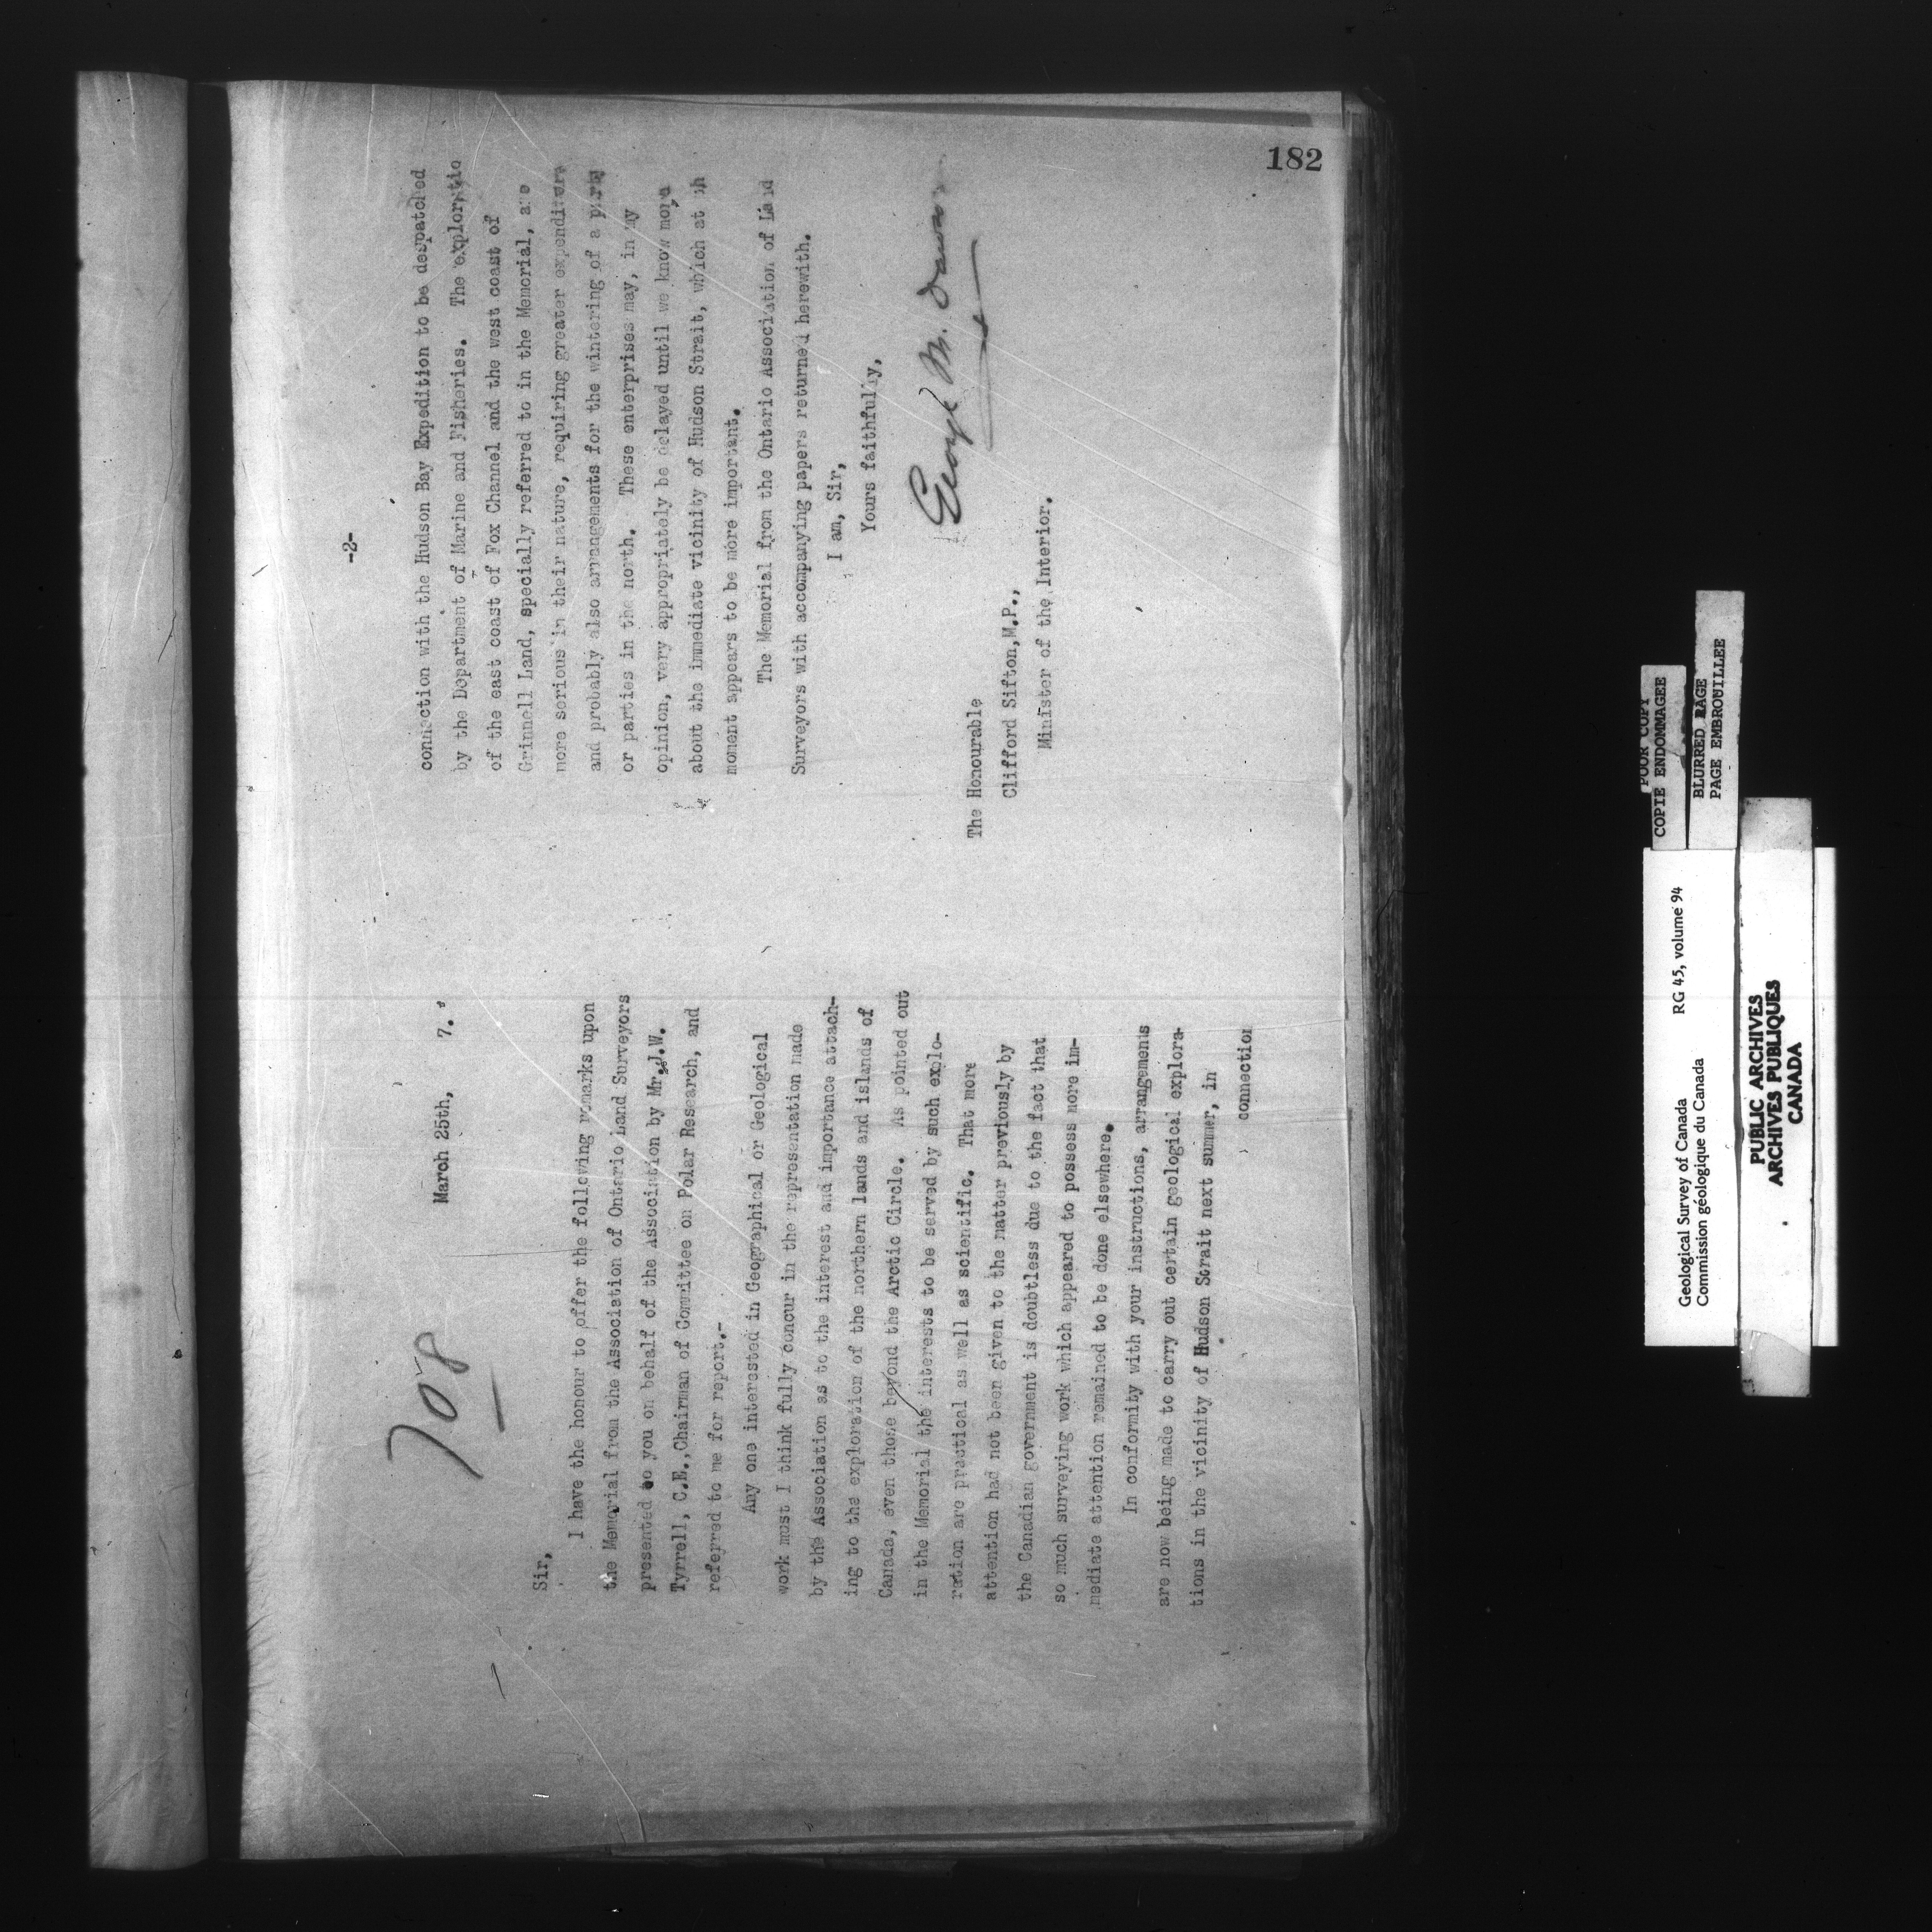 708
March 25th, 7.
Sir,
I have the honour to offer the following remarks upon
the Memorial from the Association of Ontario Land Surveyors
presented to you on behalf of the Association by Mr. J.W.
Tyrrell, C.E., Chairman of Committee on Polar Research, and
referred to me for report.-
Any one interested in Geographical or Geological
work must I think fully concur in the representation made
by the Association as to the interest and importance attach-
ing to the exploration of the northern lands and islands of
Canada, even those beyond the Arctic Circle. As pointed out
in the Memorial the interests to be served by such explo-
ration are practical as well as scientific. That more
attention had not been given to the matter previously by
the Canadian government is doubtless due to the fact that
so much surveying work which appeared to possess more im-
mediate attention remained to be done elsewhere.
In conformity with your instructions, arrangements
are now being made to carry out certain geological explora-
tions in the vicinity of Hudson Strait next summer, in
connection
-2-
connection with the Hudson Bay Expedition to be despatched
by the Department of Marine and Fisheries. The exploratio
of the east coast of Fox Channel and the west coast of
Grinnell Land, specially referred to in the Memorial, are
more serious in their nature, requiring greater expenditure
and probably also arrangements for the wintering of a party
or parties in the north. These enterprises may, in my
opinion, very appropriately be delayed until we know more
about the immediate vicinity of Hudson Strait, which at th
moment appears to be more important.
The Memorial from the Ontario Association of Land
Surveyors with accompanying papers returned herewith.
I am, Sir,
Yours faithfully,
George M. Dawson
The Honourable
Clifford Sifton, M.P.,
Minister of the Interior.
182
POOR COPY
COPIE ENDOMMAGEE
BLURRED PAGE
PAGE EMBROUILLEE
Geological Survey of Canada RG 45, volume 94
Commission géologique du Canada
PUBLIC ARCHIVES
ARCHIVES PUBLIQUES
CANADA